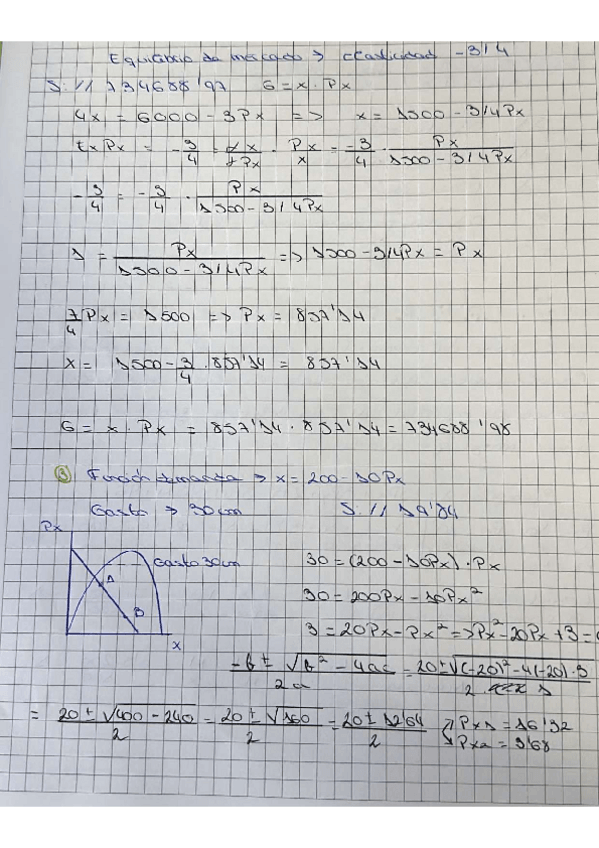 Equilibrio de mercado → elasticidad -3/4
S: // 734688'97 G = x · Px
4x = 6000 - 3Px => x = 1500 - 3/4Px
Ex Px = -3/4 = dx/dPx · Px/x = -3/4 · Px/(1500 - 3/4Px)
-3/4 = -3/4 · Px/(1500 - 3/4Px)
1 = Px/(1500 - 3/4Px) => 1500 - 3/4Px = Px
7/4 Px = 1500 => Px = 857'14
x = 1500 - 3/4 · 857'14 = 857'14
G = x · Px = 857'14 · 857'14 = 734688'98
③ Función demanda → x = 200 - 10Px
Gasto → 30um S: // 19'84
Px
A
Gasto 30um
B
x
30 = (200 - 10Px) · Px
30 = 200Px - 10Px²
3 = 20Px - Px² => Px² - 20Px + 3 =
(-b ± √(b² - 4ac))/2a = (20 ± √((-20)² - 4(-20)·3))/(2 1)
= (20 ± √(400 - 240))/2 = (20 ± √160)/2 = (20 ± 12'64)/2 Px1 = 16'32
Px2 = 3'68